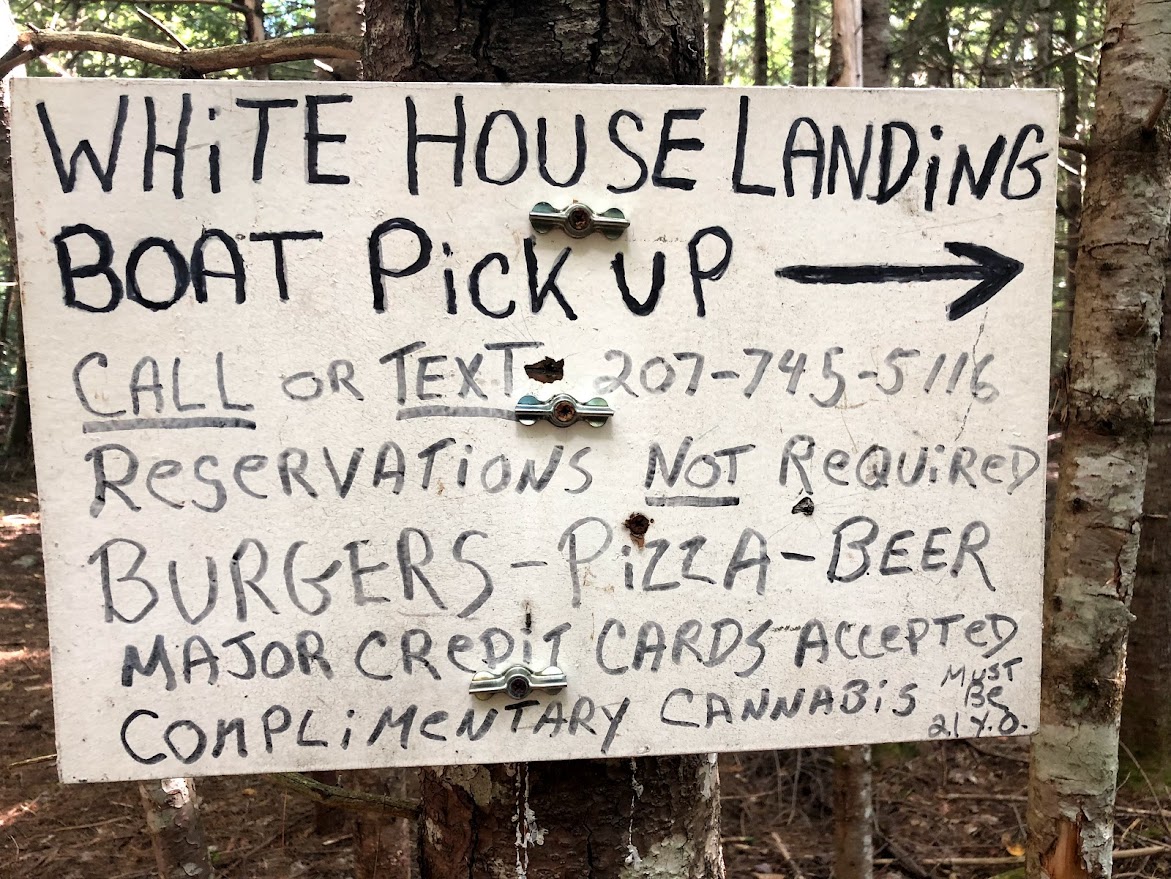 WHiTE HOUSE LANDiNG
BOAT PiCK UP →
CALL OR TEXT 207-745-5116
ReseRVATiONS NOT ReQUiReD
BURGERS-PiZZA-BEER
MAJOR CReDiT CARDS ACCePTeD
COMPLiMENTARY CANNABiS MUST Be 21 Y.O.